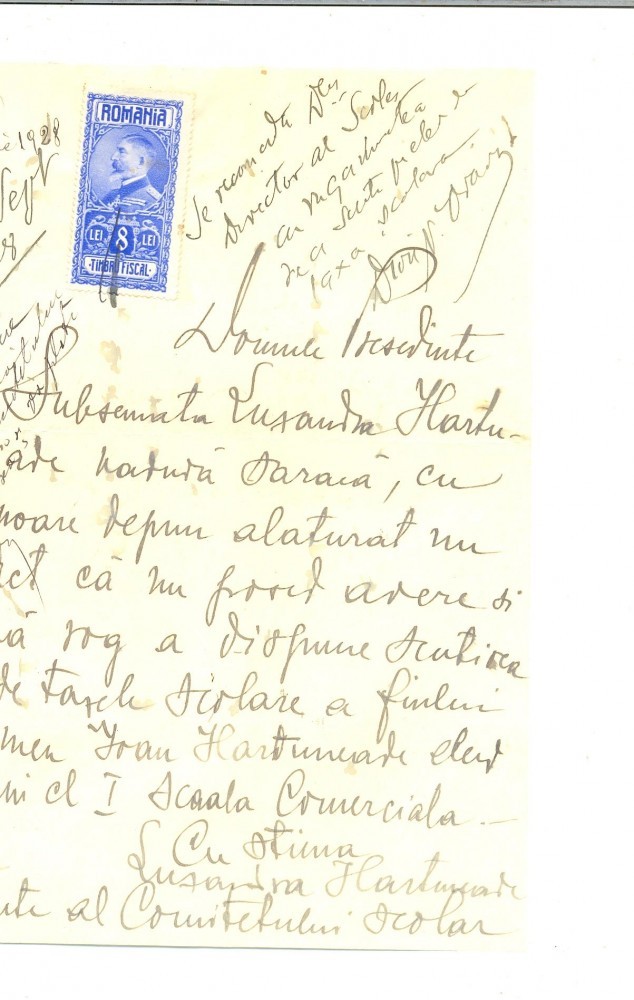 1928
Sept
ROMANIA
LEI 8 LEI
TIMBRU FISCAL
Se recomandă Dlui
Director al Scolei
cu rugamintea
de a scuti
taxa scolara
Domnule Presedinte
Subsemnata Luxandra Hartu-
văduvă saracă, cu
depun alaturat un
act că nu posed avere si
vă rog a dispune scutirea
de taxele scolare a fiului
meu Ioan Hartuneade elev
in cl I Scoala Comerciala. —
Cu stima
Luxandra Hartuneade
al Comitetului scolar